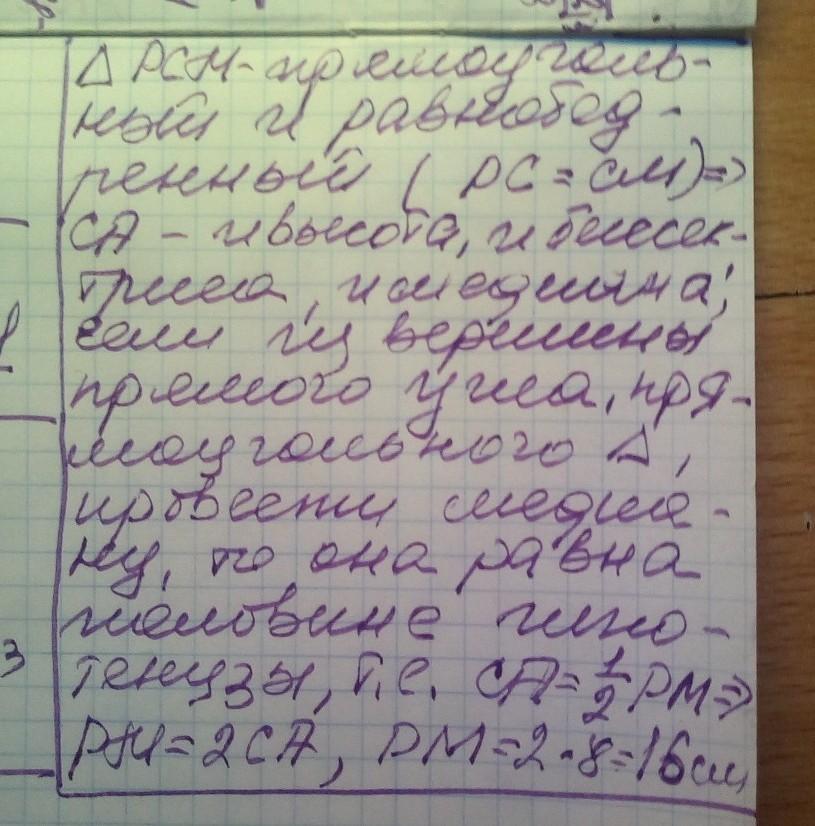 Δ РСМ-прямоуголь-
ный и равнобед-
ренный ( РС = СМ) =>
СА - и высота, и биссек-
триса, и медиана;
если из вершины
прямого угла, пря-
моугольного Δ,
провести медиа-
ну, то она равна
половине гипо-
тенузы, т.е. СА = 1/2 РМ =>
РМ = 2СА, РМ = 2 · 8 = 16 см
3